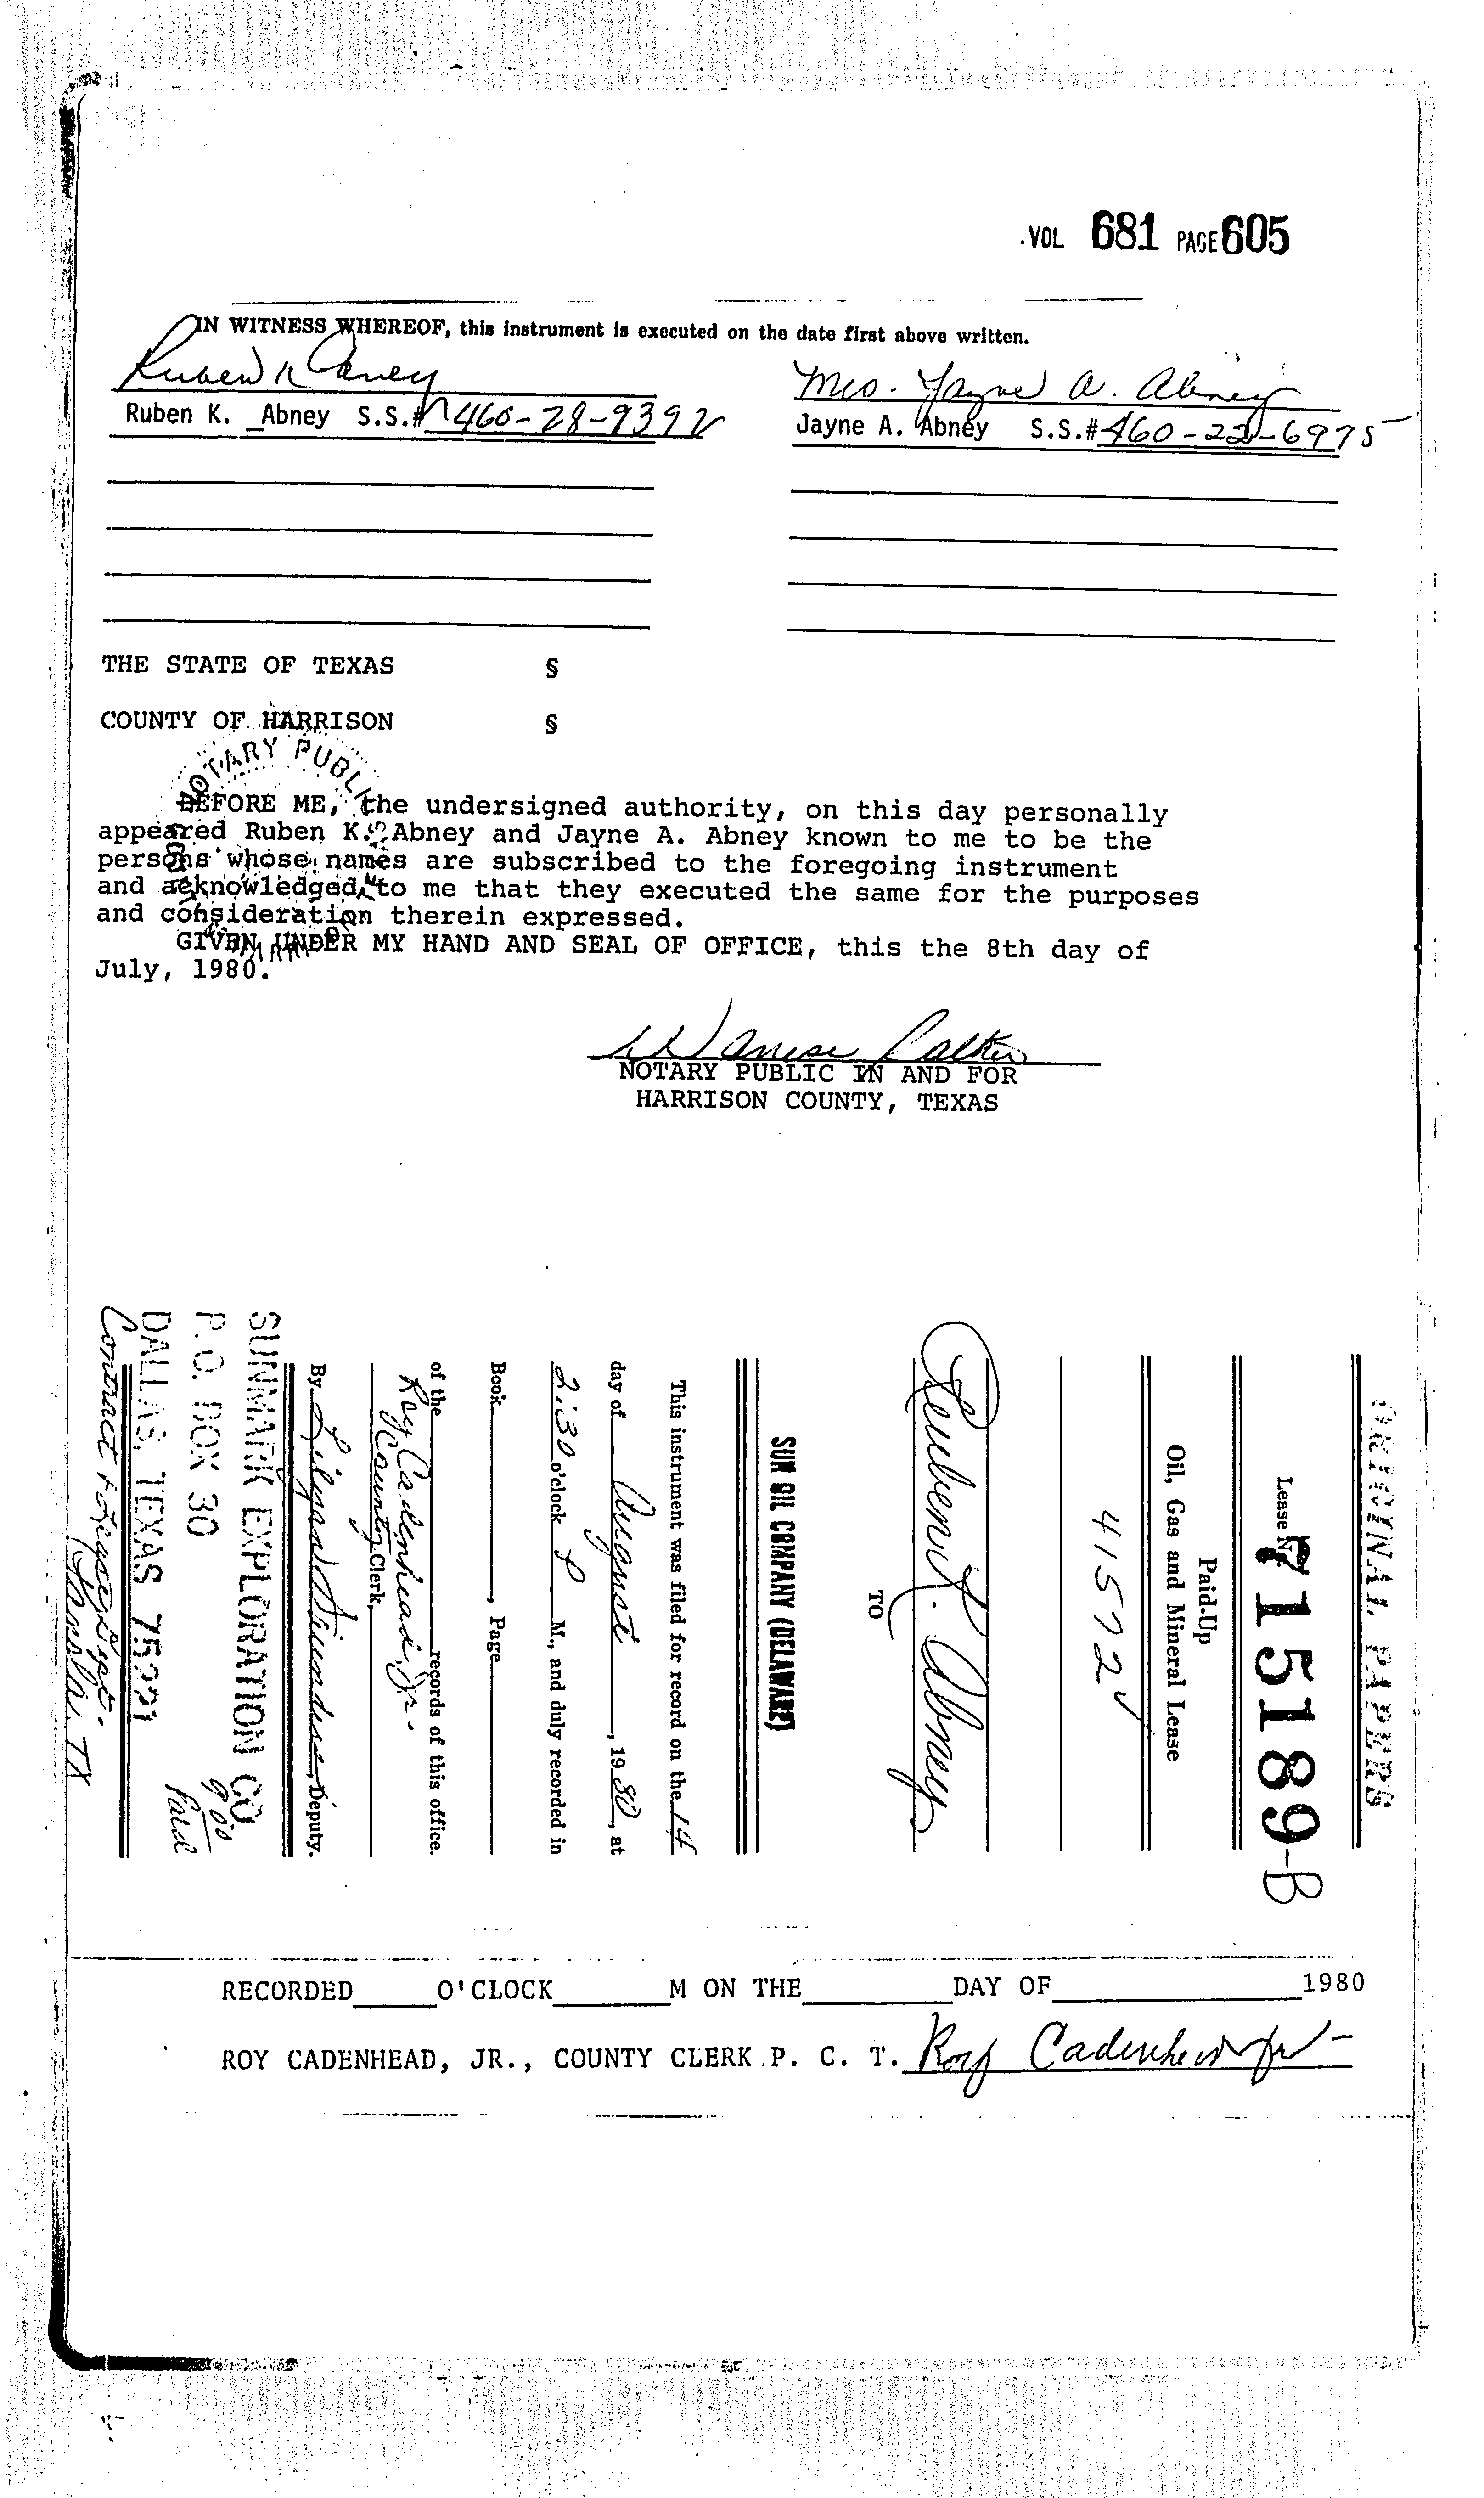 .VOL 681 PAGE 605
IN WITNESS WHEREOF, this instrument is executed on the date first above written.
Ruben K Abney
Mrs. Jayne A. Abney
Ruben K. _Abney S.S.# 460-28-9392
Jayne A. Abney S.S.# 460-22-6975
THE STATE OF TEXAS §
COUNTY OF HARRISON §
NOTARY PUBLIC
BEFORE ME, the undersigned authority, on this day personally
appeared Ruben K. Abney and Jayne A. Abney known to me to be the
persons whose names are subscribed to the foregoing instrument
and acknowledged to me that they executed the same for the purposes
and consideration therein expressed.
GIVEN UNDER MY HAND AND SEAL OF OFFICE, this the 8th day of
July, 1980.
NOTARY PUBLIC IN AND FOR
HARRISON COUNTY, TEXAS
ORIGINAL PAPERS
Lease No. 715189-B
Paid-Up
Oil, Gas and Mineral Lease
41572
Reuben K. Abney
TO
SUN OIL COMPANY (DELAWARE)
This instrument was filed for record on the 14
day of August, 1980, at
2:30 o'clock P M., and duly recorded in
Book, Page
of the records of this office.
Roy Cadenhead, Jr.
County Clerk,
By Deputy.
SUNMARK EXPLORATION CO.
P.O. BOX 30
DALLAS, TEXAS 75221
Contract & Lease Dept.
Dallas, TX
9.00
Paid
RECORDED O'CLOCK M ON THE DAY OF 1980
ROY CADENHEAD, JR., COUNTY CLERK P. C. T. Roy Cadenhead Jr